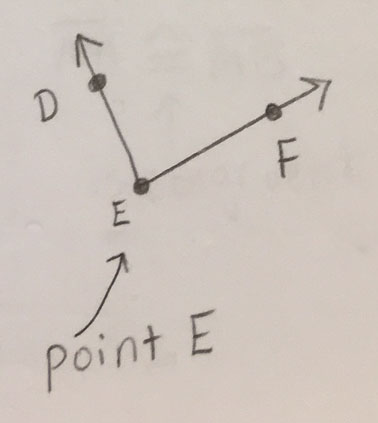 D
F
E
point E